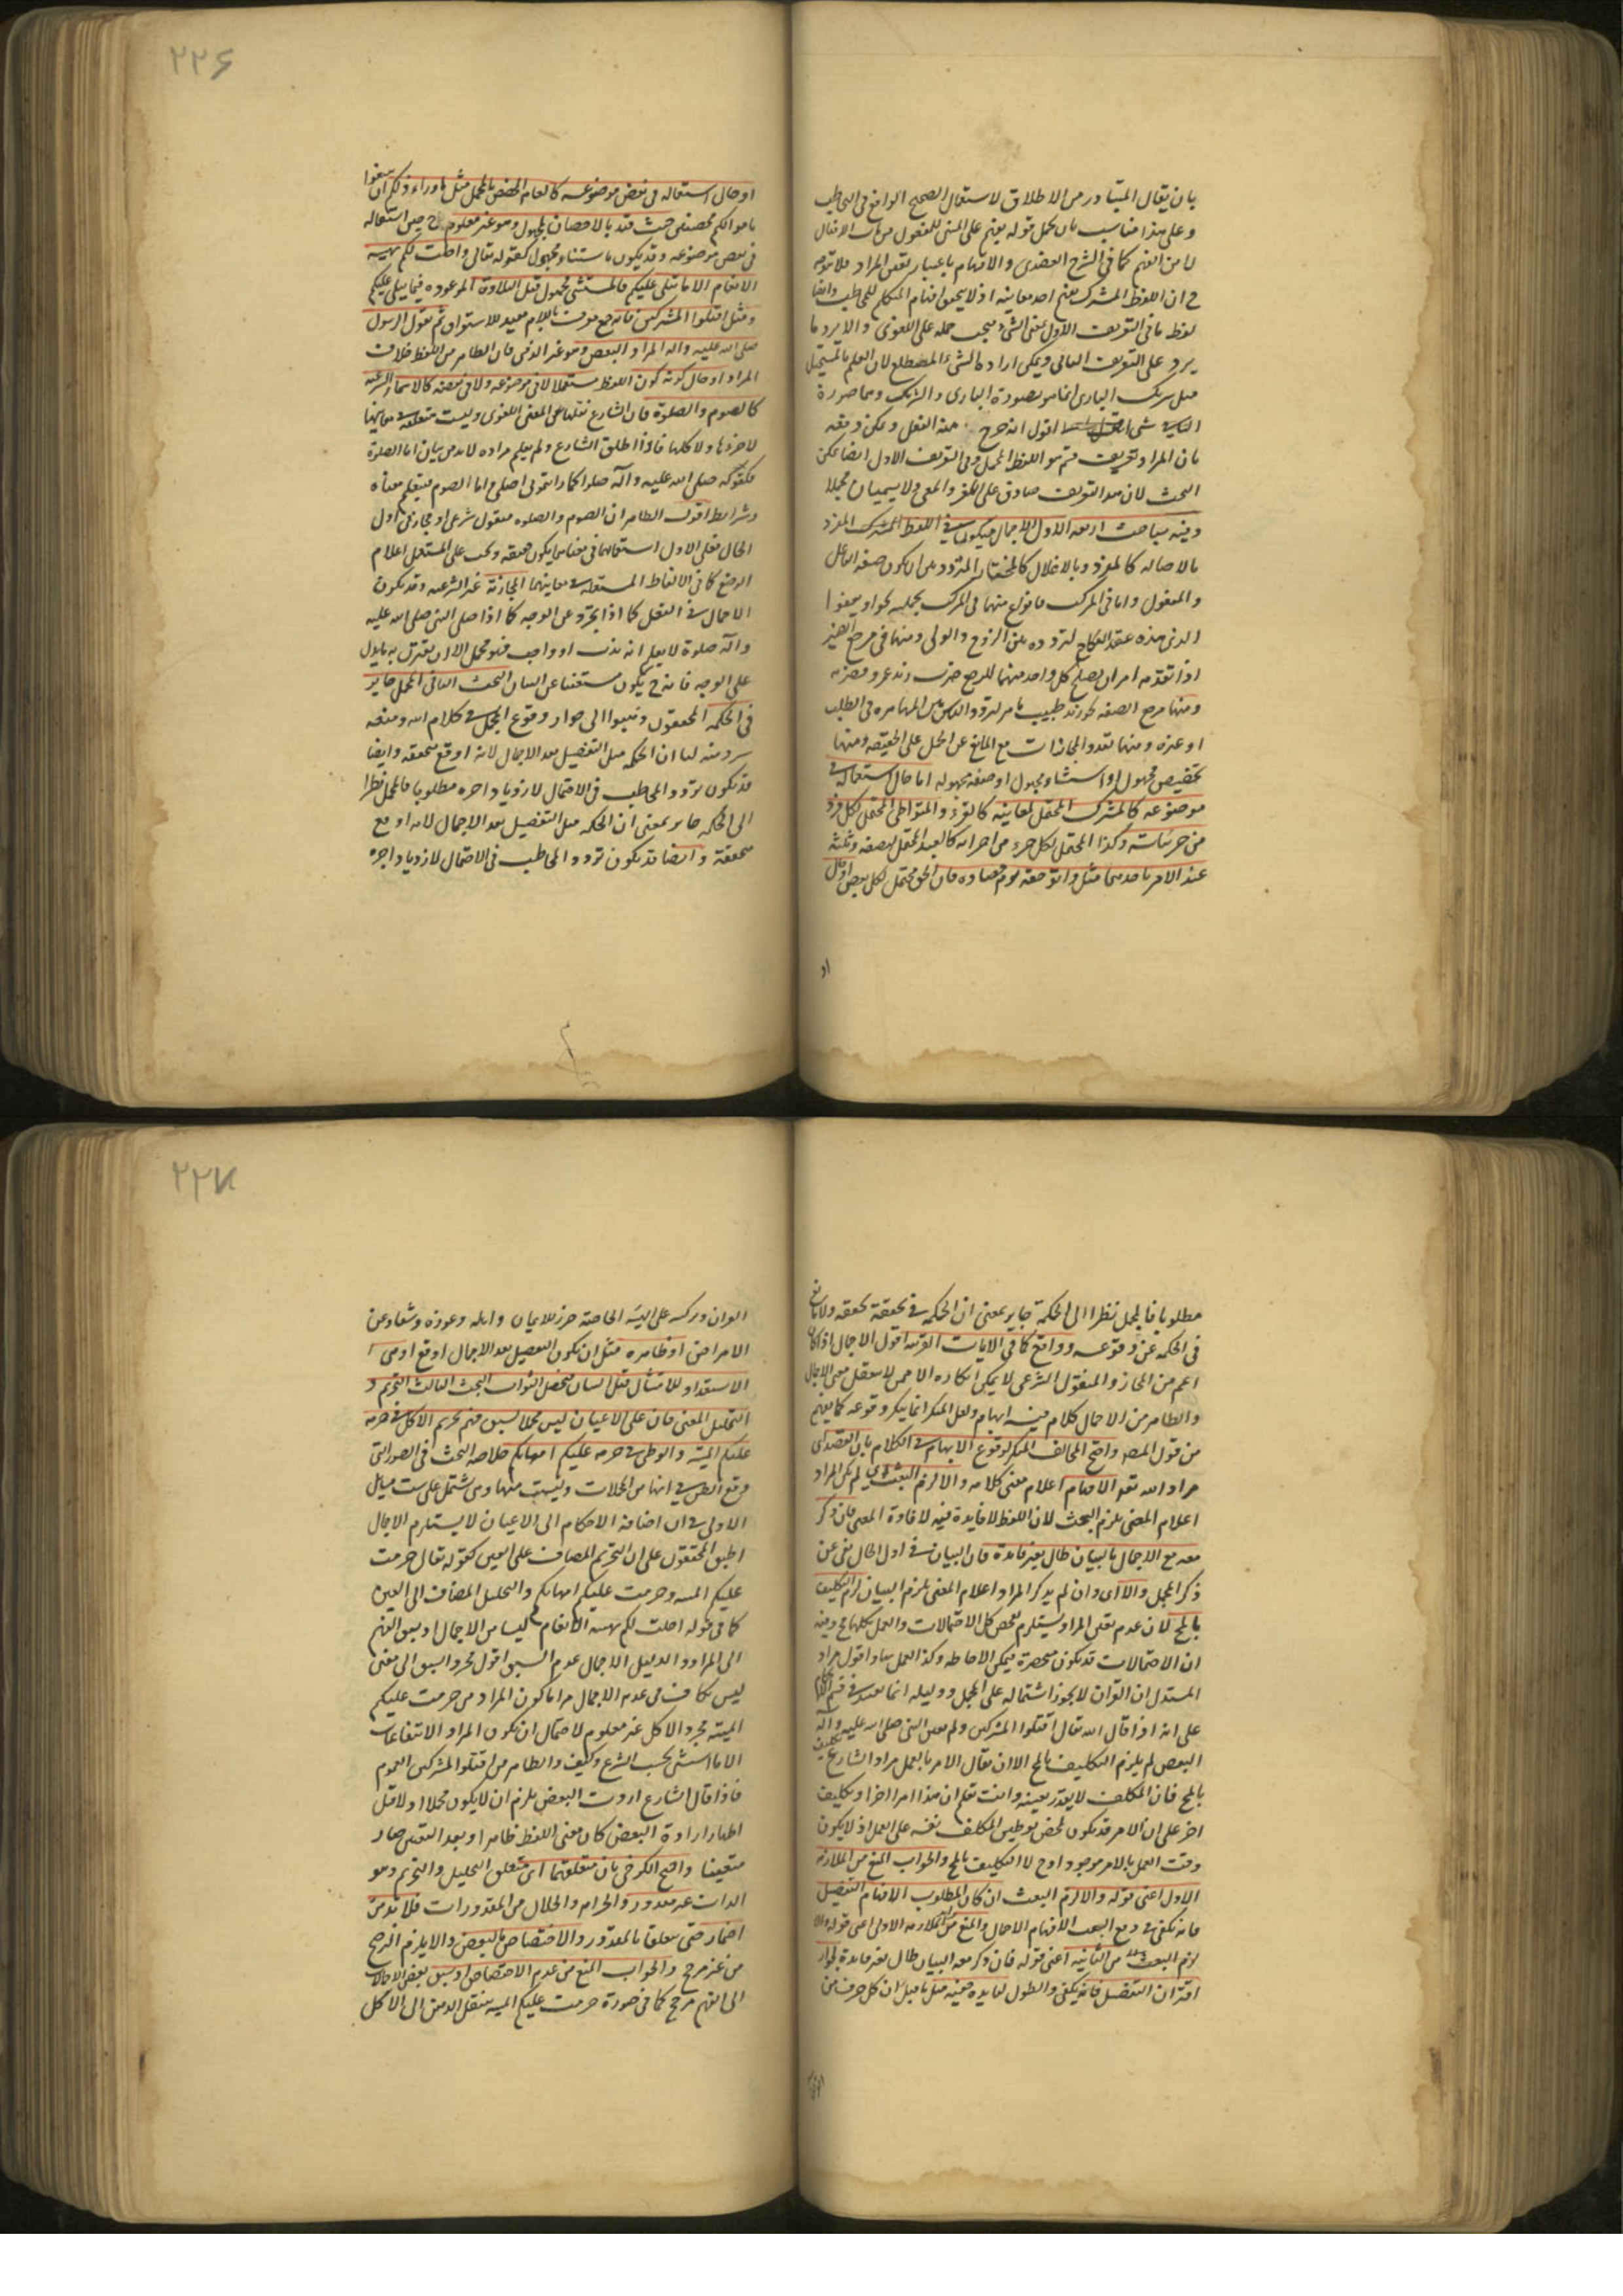 بان يقال المتبادر من الاطلاق لاستعمال الصحيح الواقع فى التخاطب
وعلى هذا مناسب بان يحمل قوله يفهم على المبنى للمفعول من باب الافعال
لا من الفهم كما فى الشرح العضدى والافهام باعتبار نفس المراد فلا توجه
ح ان اللفظ المشترك يفهم احد معانيه اذ لا يحق افهام المتكلم للمخاطب وايضا
لفظ ما فى التعريف الاول بمعنى الشىء فيجب حمله على اللغوى والا يرد ما
يرد على التعريف الثانى ويمكن ارادة الشىء المصطلح لان العلم بالمستحيل
مثل شريك البارى انما هو بصورة البارى والشريك وبما صورة
اقول انه خرج منه الفعل ويمكن دفعه
بان المراد تعريف قسم هو اللفظ المجمل وفى التعريف الاول ايضا يمكن
البحث لان هذا التعريف صادق على اللغز والمعمى ولا يسميان مجملا
وفيه مباحث اربعة الاول الاجمال فيكون فى اللفظ المشترك المفرد
بالاصالة كالمفرد وبالاعلال كالمختار المتردد بين ان يكون صفة الفاعل
والمفعول واما فى المركب فانواع منها فى المركب بجملته نحو او يعفوا
الذى بيده عقدة النكاح لتردده بين الزوج والولى ومنها فى مرجع الضمير
اذا تقدمه امران يصلح كل واحد منهما للمرجع ضرب زيد عمرو فضربته
ومنها مرجع الصفة نحو زيد طبيب ماهر لتردد الماهر بين المهارة فى الطب
او غيره ومنها تعدد المجازات مع المانع عن الحمل على الحقيقة ومنها
تخصيص مجهول او استثناء مجهول او صفة مجهولة اما حال استعماله فى
موضوعه كالمشترك المحتمل لمعانيه كالقرء والمتواطى المحتمل لكل فرد
من جزئياته وكذا المحتمل لكل جزء من اجزائه كالعبد المحتمل لنصفه وثلثه
عند الامر باحدهما مثل واتوا حقه يوم حصاده فان الحق محتمل لكل بعض او قال
او
٢٢٦
او حال استعماله فى بعض موضوعه كالعام المخصص بالمجمل مثل ما وراء ذلكم ان تبتغوا
باموالكم محصنين حيث قيد بالاحصان المجهول وهو غير معلوم ح حين استعماله
فى بعض موضوعه وقد يكون باستثناء مجهول كقوله تعالى واحلت لكم بهيمة
الانعام الا ما يتلى عليكم فالمستثنى مجهول قبل التلاوة الموعودة فيما يتلى عليكم
ومثل اقتلوا المشركين فانه جمع معرف باللام مفيد للاستغراق ثم يقول الرسول
صلى الله عليه واله المراد البعض وهو غير الذمى فان الظاهر من اللفظ خلاف
المراد او حال كونه كون اللفظ مستعملا لا فى موضوعه ولا فى بعضه كالاسماء الشرعية
كالصوم والصلوة فان الشارع نقلها عن المعنى اللغوى وليست متعلقة فى معانيها
لا جزءها ولا كلها فاذا اطلق الشارع ولم يعلم مراده لا بد من بيان اما الصلوة
فكقوله صلى الله عليه وآله صلوا كما رايتمونى اصلى واما الصوم فيتعلم معناه
وشرايط اقول الظاهر ان الصوم والصلوة منقول شرعى او مجاز فى اول
الحال فعلى الاول استعمالها فى معناها يكون حقيقة ويجب على المستعمل اعلام
الوضع كما فى الالفاظ المستعملة فى معانيها المجازية غير الشرعية وقد يكون
الاجمال فى الفعل كما اذا تجرد عن الوجه كما اذا صلى النبى صلى الله عليه
وآله صلوة لا يعلم انه ندب او واجب فهو مجمل الا ان يقترن به ما يدل
على الوجه فانه ح يكون مستغنيا عن البيان البحث الثانى المجمل جايز
فى الحكمة المحققون ذهبوا الى جواز وقوع المجمل فى كلام الله ومنعه
شرذمة لنا ان الحكمة مثل التفصيل بعد الاجمال لانه اوقع متحققة وايضا
قد يكون تردد المخاطب فى الاحتمال لازدياد اجره مطلوبا فالمجمل نظرا
الى الحكمة جايز بمعنى ان الحكمة مثل التفصيل بعد الاجمال لانه اوقع
متحققة وايضا قد يكون تردد المخاطب فى الاحتمال لازدياد اجره
مطلوبا فالمجمل نظرا الى الحكمة جايز بمعنى ان الحكمة فى تحققه تحققه ولا مانع
فى الحكمة عن وقوعه وواقع كما فى الايات القرآنية اقول الاجمال اذا كان
اعم من المجاز والمنقول الشرعى لا يمكن انكاره الا ممن لا يتعقل معنى الاجمال
والظاهر من الاجمال كلام فيه ابهام ولعل المنكر انما ينكر وقوعه كما يفهم
من قول المصـ واحتج المخالف المنكر لوقوع الابهام فى الكلام بان القصد اى
مراد الله تعه الافهام اعلام معنى كلامه والا لزم العبث اى لو لم يكن المراد
اعلام المعنى يلزم البحث لان اللفظ لا فايدة فيه لافادة المعنى فان ذكر
معه مع الاجمال بالبيان طال بغير فايدة فان البيان فى اول الحال يغنى عن
ذكر المجمل والا اى وان لم يذكر المراد اعلام المعنى يلزم البيان لزم التكليف
بالمح لان عدم تعيين المراد يستلزم تفحص كل الاحتمالات والعمل بكلها مح وفيه
ان الاحتمالات قد يكون منحصرة فيمكن الاحاطة وكذا العمل بها واقول مراد
المستدل ان القرآن لا يجوز اشتماله على المجمل ودليله انما يفيد فى قسم الاحكام
على انه اذا قال الله تعال اقتلوا المشركين ولم يعين النبى صلى الله عليه وآله
البعض لم يلزم التكليف بالمح الا ان يقال الامر بالعمل مراد الشارع تكليف
بالمح فان المكلف لا يقدر بعينه وانت تعلم ان هذا امر اخر او تكليف
اخر على ان الامر قد يكون لمحض توطين المكلف نفسه على العمل اذ لا يكون
وقت العمل بالامر موجودا وح لا التكليف بالمح والجواب المنع من الملازمة
الاولى اعنى قوله والا لزم العبث ان كان المطلوب الافهام التفصيل
فانه يكفى فى دفع العبث الافهام الاجمالى والمنع من الملازمة الاولى اعنى قوله والا
لزم العبث من الثانية اعنى قوله فان ذكر معه البيان طال بغير فايدة لجواز
اقتران التفصيل فانه يكفى والطول لفايدة فيه مثل ما قيل ان كل حرف من
القرآن
٢٢٧
القرآن وركبه على الهيئة الخاصة حرز للايمان وابله وعوذة وشفاء عن
الامراض او ظاهره مثل ان يكون التفصيل بعد الاجمال اوقع او هى
الاستعداد للامتثال قبل البيان فيحصل الثواب البحث الثالث التحريم و
التحليل المعنى فان على الاعيان ليس مجملا لسبق فهم تحريم الاكل فى حرمة
عليكم الميتة والوطى فى حرمة عليكم امهاتكم خلاصة البحث فى الصور التى
وقع الظن فى انها من المجملات وليست منها وهى تشتمل على ست مسائل
الاولى فى ان اضافة الاحكام الى الاعيان لا يستلزم الاجمال
اطبق المحققون على ان التحريم المضاف على العين كقوله تعالى حرمت
عليكم الميتة وحرمت عليكم امهاتكم والتحليل المضاف الى العين
كما فى قوله احلت لكم بهيمة الانعام ليسا من الاجمال اذ يسبق الفهم
الى المراد ودليل الاجمال عدم السبق اقول مجرد السبق الى معنى
ليس بكاف فى عدم الاجمال مراما كون المراد من حرمت عليكم
الميتة مجرد الاكل غير معلوم لاحتمال ان يكون المراد الانتفاعات
الا ما استثنى بحسب الشرع وكيف والظاهر من اقتلوا المشركين العموم
فاذا قال الشارع اردت البعض يلزم ان لا يكون مجملا اولا قبل
اظهار ارادة البعض كان معنى اللفظ ظاهرا وبعد التعيين صار
متعينا واحتج الكرخى بان متعلقهما اى متعلق التحليل والتحريم وهو
الذات غير مقدور والحرام والحلال من المقدورات فلا بد من
اضمار حتى يتعلقا بالمقدور والاختصاص بالبعض والا يلزم الترجيح
من غير مرجح والجواب المنع من عدم الاختصاص اذ يسبق بعض الاحتمالات
الى الفهم مرجح كما فى صورة حرمت عليكم الميتة ينتقل الذهن الى الاكل